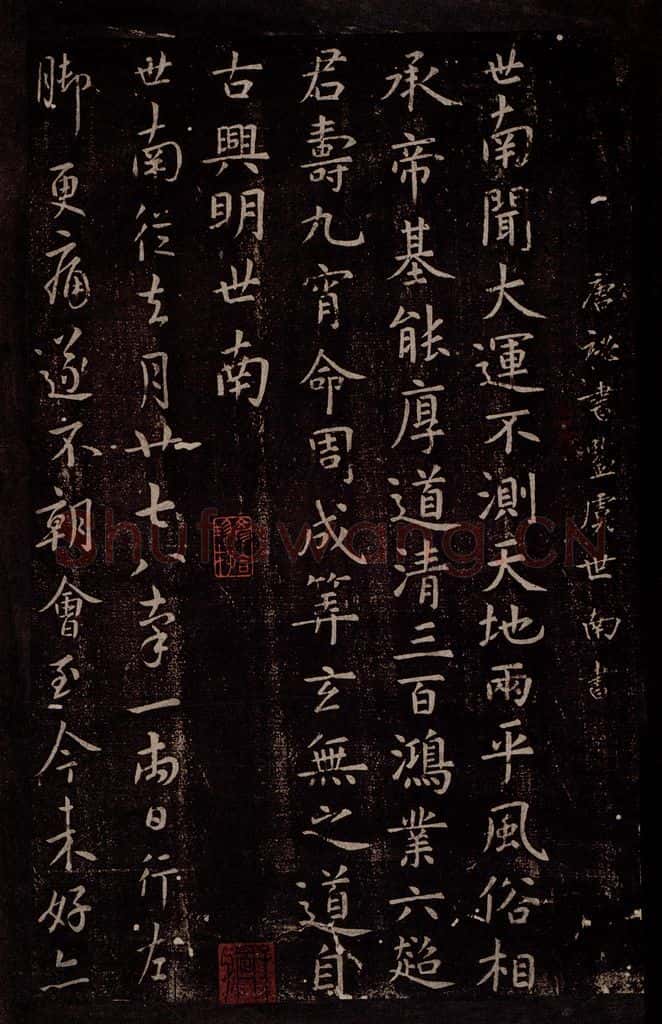 唐秘書監虞世南書
世南聞大運不測天地兩平風俗相
承帝基能厚道清三百鴻業六超
君壽九霄命周成筭玄無之道自
古興明世南
世南從去月廿七八率一兩日行左
脚更痛遂不朝會至今未好亦
Shufawang.CN